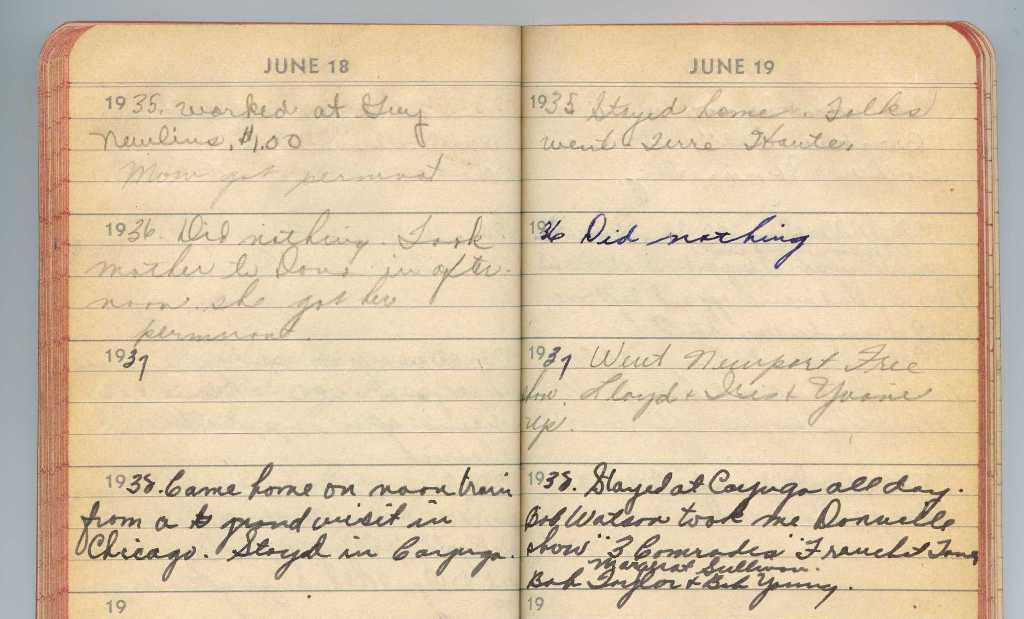 JUNE 18
1935. worked at Guy
Newlins, $1.00
Mom got permnat
1936. Did nothing. Took
mother to Dana in after-
noon. she got her
permnant.
1937
1938. Came home on noon train
from a grand visit in
Chicago. Stayed in Cayuga.
19
JUNE 19
1935 Stayed home. Folks
went Terre Haute.
1936 Did nothing
1937 Went Newport Free
show. Lloyd + Iris + Yvonne
up.
1938. Stayed at Cayuga all day.
Bob Watson took me Danville
show "3 Comrades" Franchot Tone,
Margaret Sullivan.
Bob Taylor + Bob Young.
19